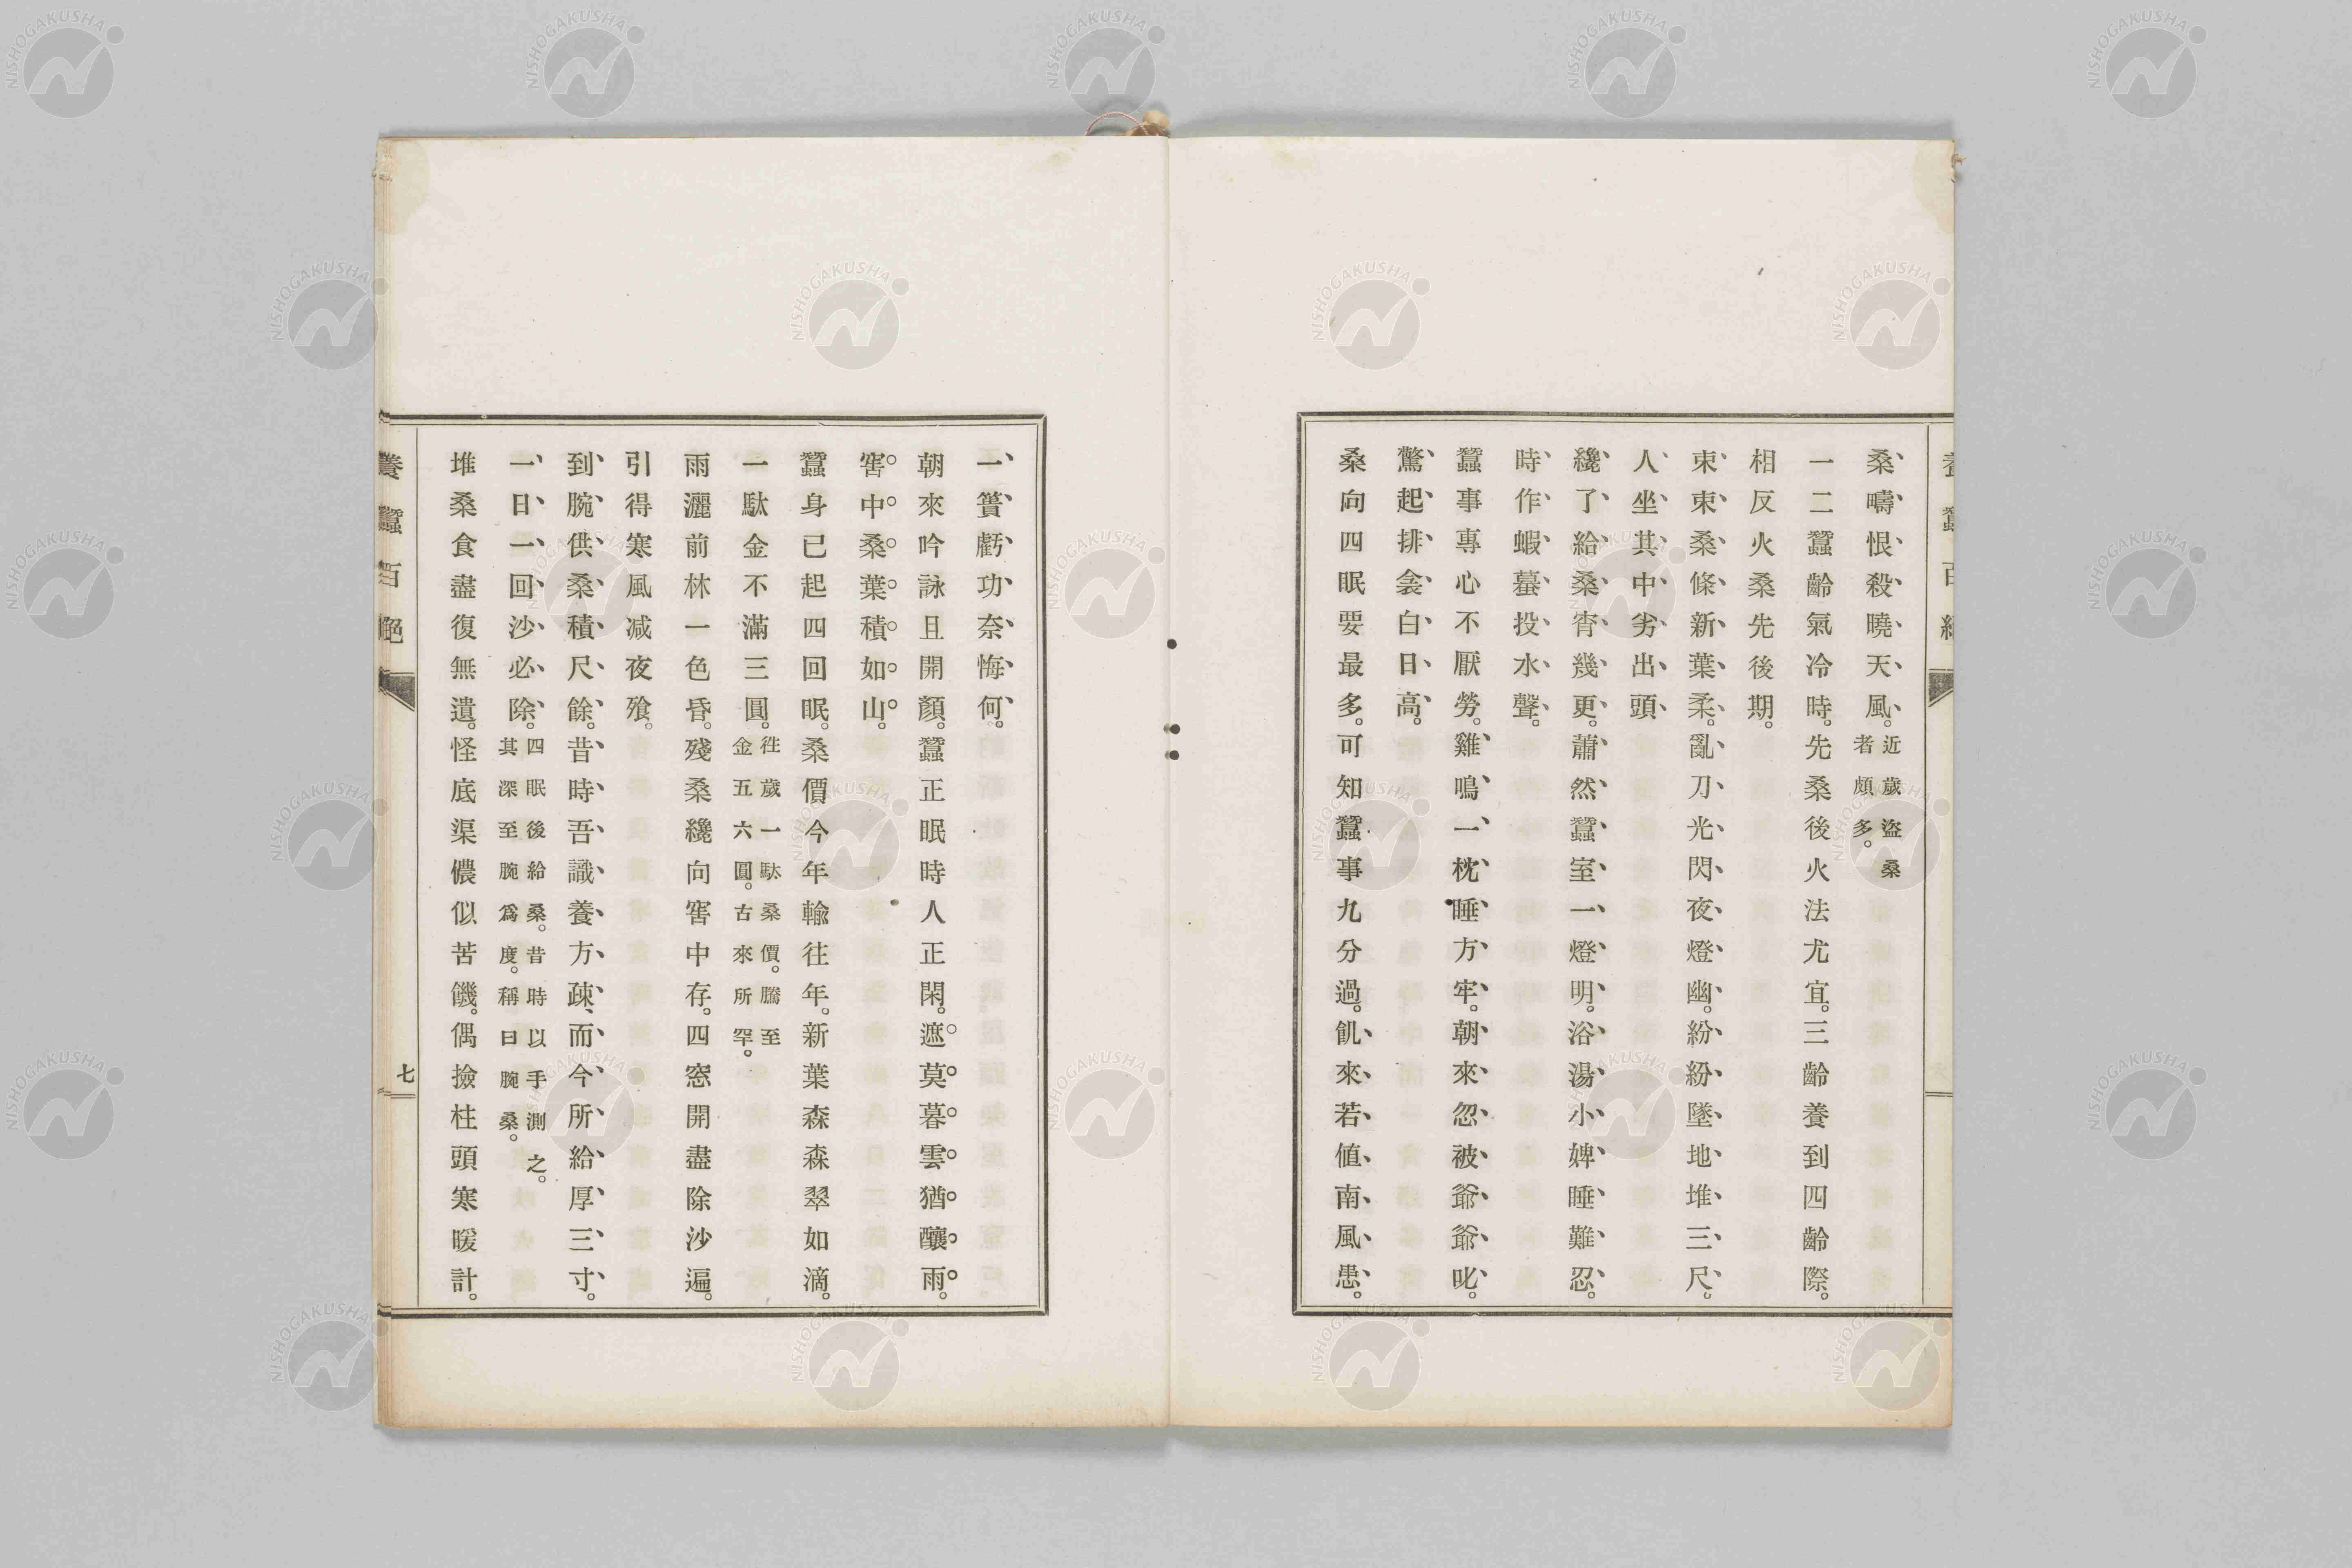 桑疇恨殺曉天風。近歲盜桑
者頗多。
一二蠶齡氣冷時。先桑後火法尤宜。三齡養到四齡際。
相反火桑先後期。
束束桑條新葉柔。亂刀光閃夜燈幽。紛紛墜地堆三尺。
人坐其中劣出頭
纔了給桑宵幾更。蕭然蠶室一燈明。浴湯小婢睡難忍。
時作蝦蟇投水聲。
蠶事專心不厭勞。雞鳴一枕睡方牢。朝來忽被爺爺叱。
驚起排衾白日高。
桑向四眠要最多。可知蠶事九分過。飢來若值南風患。
一簣虧功奈悔何。
朝來吟詠且開顏。蠶正眠時人正閑。遮莫暮雲猶釀雨。
窖中桑葉積如山。
蠶身已起四回眠。桑價今年輸往年。新葉森森翠如滴。
一駄金不滿三圓。徃歲一駄桑價。騰至
金五六圓。古來所罕。
雨灑前林一色昏。殘桑纔向窖中存。四窓開盡除沙遍。
引得寒風减夜飱。
到腕供桑積尺餘。昔時吾識養方疎、而今所給厚三寸。
一日一回沙必除。四眠後給桑。昔時以手測之。
其深至腕爲度。稱曰腕桑。
堆桑食盡復無遺。怪底渠儂似苦饑。偶撿柱頭寒暖計。
養蠶百絕
七
NISHOGAKUSHA